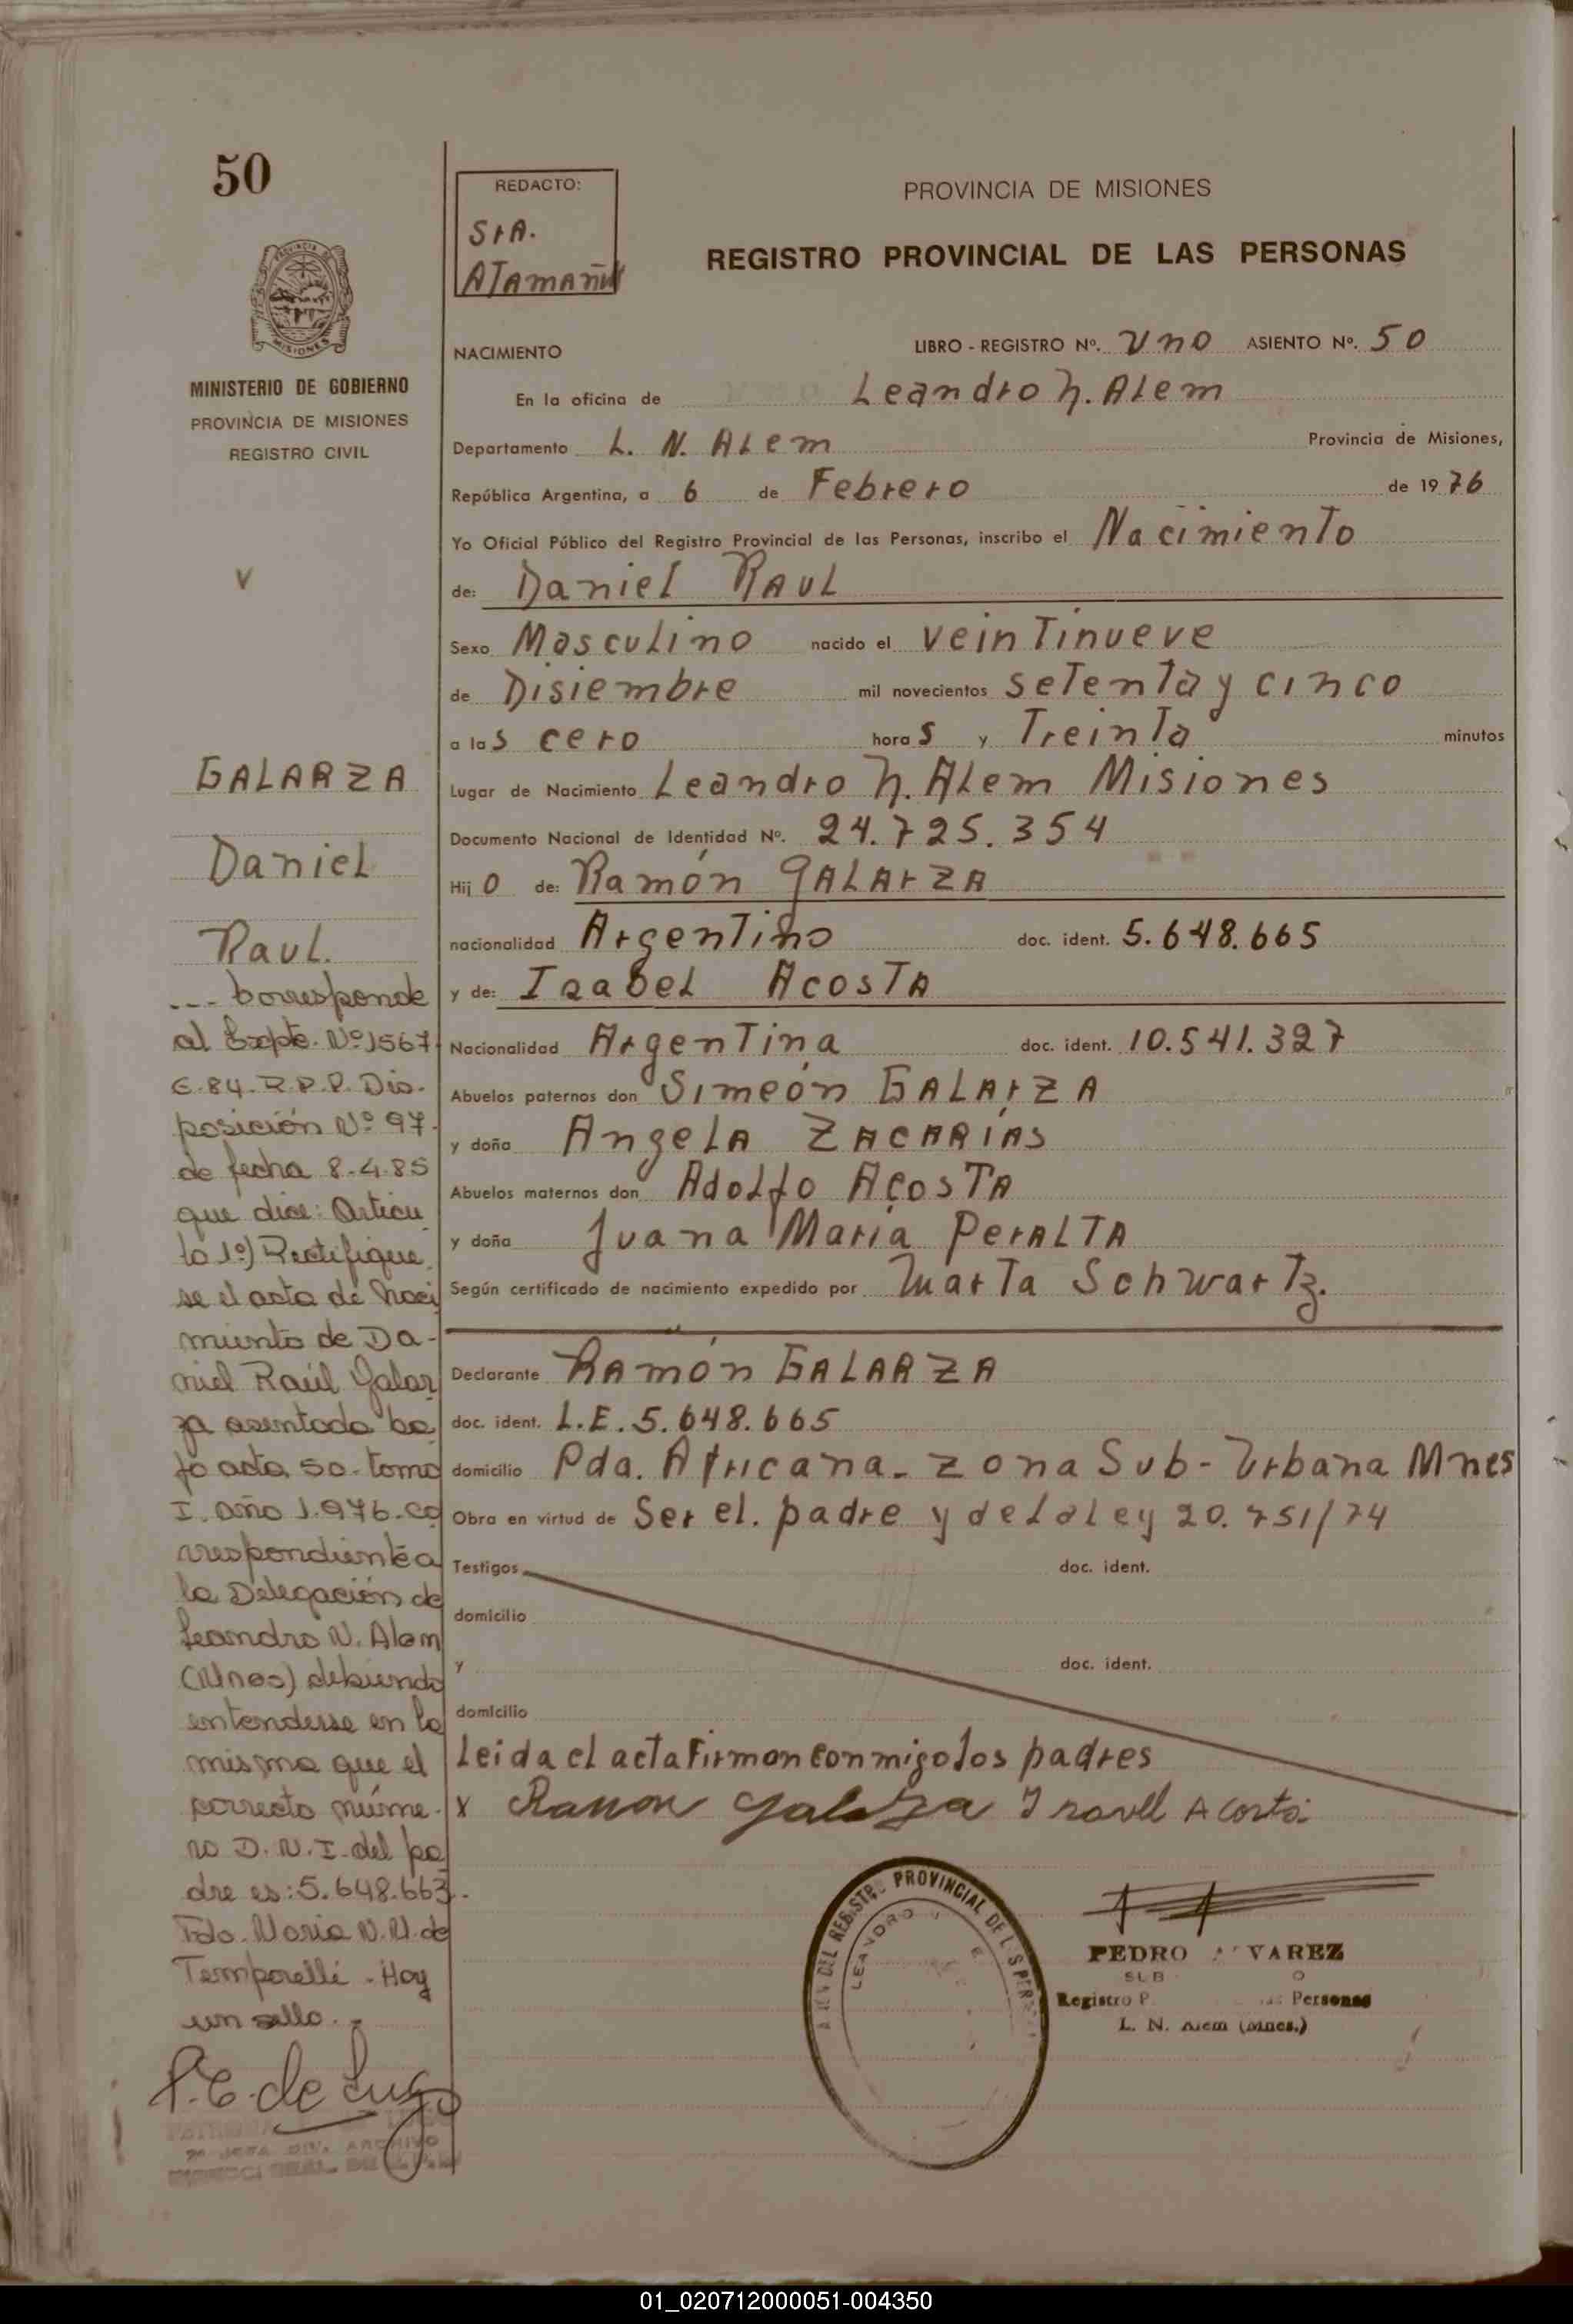 50
REDACTO:
SrA.
ATAMAÑUK
PROVINCIA DE MISIONES
REGISTRO PROVINCIAL DE LAS PERSONAS
MISIONES
MINISTERIO DE GOBIERNO
PROVINCIA DE MISIONES
REGISTRO CIVIL
NACIMIENTO
LIBRO - REGISTRO Nº. Uno ASIENTO Nº. 50
En la oficina de Leandro N. ALem
Departamento L. N. ALem Provincia de Misiones,
República Argentina, a 6 de Febrero de 1976
Yo Oficial Público del Registro Provincial de las Personas, inscribo el Nacimiento
de: Daniel RAUL
Sexo Masculino nacido el veintinueve
de Disiembre mil novecientos setenta y cinco
a las cero horas y Treinta minutos
Lugar de Nacimiento Leandro N. ALem Misiones
Documento Nacional de Identidad Nº. 24.725.354
Hijo de: Ramón GALArZA
nacionalidad Argentino doc. ident. 5.648.665
y de: Isabel AcosTA
Nacionalidad Argentina doc. ident. 10.541.327
Abuelos paternos don Simeón GALArZA
y doña AngeLA ZACARÍAS
Abuelos maternos don Adolfo AcosTA
y doña Juana María PerALTA
Según certificado de nacimiento expedido por Marta Schwartz.
Declarante RAmón GALARZA
doc. ident. L.E. 5.648.665
domicilio Pda. Africana - zona Sub-Urbana Mnes
Obra en virtud de Ser el. padre y de la ley 20.751/74
Testigos doc. ident.
domicilio
y doc. ident.
domicilio
Leida el acta Firman conmigo los padres
x Ramon Galarza Isavel Acosta
GALARZA
Daniel
Raul.
... Corresponde
al Expte. Nº 1567.
G-84-R.P.P. Dis-
posición Nº 97.
de fecha 8.4.85
que dice: Artícu
lo 1º) Rectifique
se el acta de naci
miento de Da-
niel Raúl Galar
za asentada ba
jo acta 50. tomo
I. año 1.976. co
rrespondiente a
la Delegación de
Leandro N. Alem
(Mnes) debiendo
entenderse en la
misma que el
correcto núme-
ro D.N.I. del pa
dre es: 5.648.663.
Fdo. Maria N.M. de
Temporelli - Hay
un sello.
P.E. de Lugo
DEL REGISTRO PROVINCIAL DE L S PERS
LEANDRO
PEDRO VAREZ
SUB
Registro P Personas
L. N. Alem (Mnes.)
01_020712000051-004350